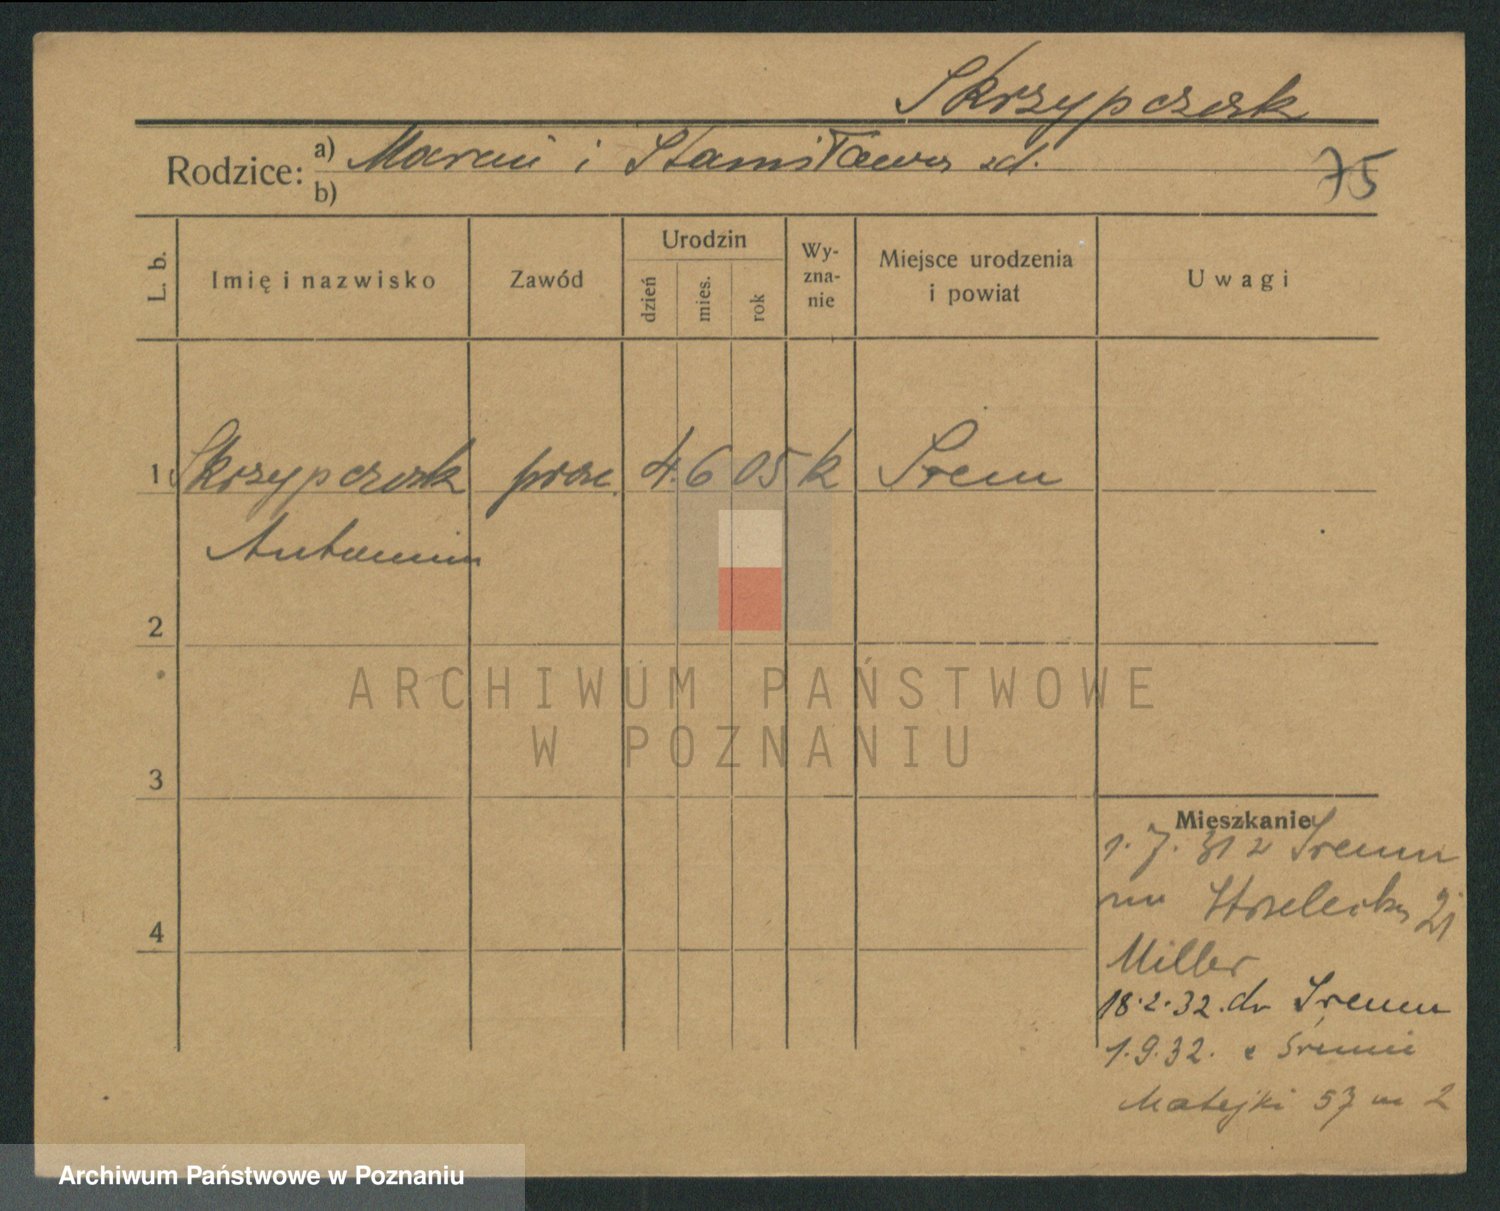 Skrzypczak
Rodzice: a) Marcin i Stanisława zd.
b)
75
L. b.
Imię i nazwisko
Zawód
Urodzin
dzień
mies.
rok
Wy-
zna-
nie
Miejsce urodzenia
i powiat
Uwagi
1 Skrzypczak prac. 4. 6 05 k Śrem
Antonina
2
3
4
Mieszkanie
1. 7. 31 z Śremu
na Strzelecka
Miller
18.2.32. do Śremu
1.9.32. z Śremu
Matejki 57 m 2
ARCHIWUM PAŃSTWOWE
W POZNANIU
Archiwum Państwowe w Poznaniu